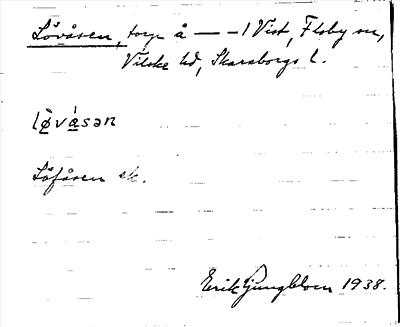 Lövåsen, torp å — – 1 Vist, Floby sn,
Vilske hd, Skaraborgs l.
lö̀vàsən
Löfåsen ek.
Erik Ljungblom 1938.